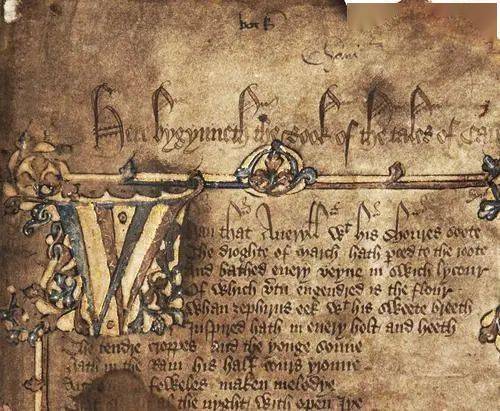 Here bygynneth the Book of the tales of Ca
Whan that Aueryll wt his shoures soote
The droghte of march hath pced to the roote
And bathed euery veyne in swich lycour
Of which vtu engendred is the flour
Whan zephirus eek wt his sweete breeth
Inspired hath in euery holt and heeth
The tendre croppes and the yonge sonne
hath in the Ram his half cours yronne
foweles maken melodye
al the nyght with open Iye